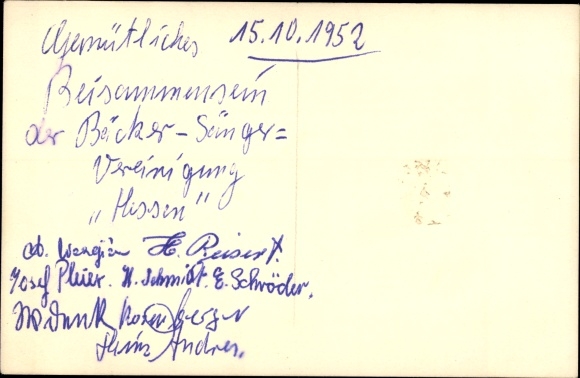 Gemütliches 15.10.1952
Beisammensein
der Bäcker-Sänger=
Vereinigung
„Hessen"
H. Reisert.
Josef Pleier. H. Schmidt. E. Schröder.
Rosenberger
Heinz Andres.